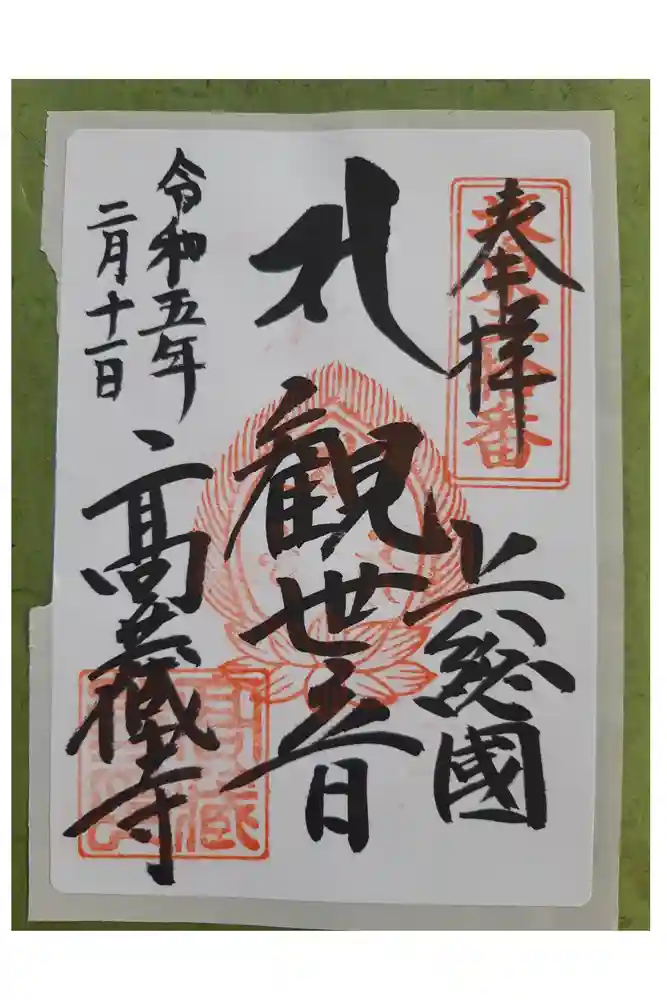 奉拝
番
上総國
観世音
高蔵寺
令和五年
二月十一日